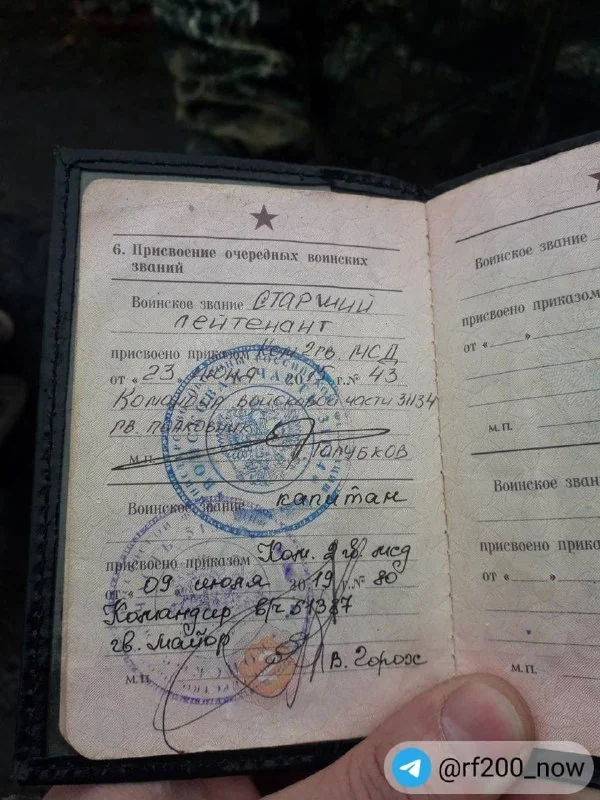 6. Присвоение очередных воинских
званий
Воинское звание СТАРШИЙ
ЛЕЙТЕНАНТ
присвоено приказом Ком. 2 гв. МСД
от «23» июня 2015 г. № 43
Командир войсковой части 31134
гв. полковник
М.П. Голубков
Воинское звание капитан
присвоено приказом Ком. 2 гв. мсд
от «09» июня 2019 г. № 80
Командир в/ч 51387
гв. майор
М.П. В. Горох
Воинское звание
присвоено приказом
от «__»
М.П.
Воинское зван
присвоено прика
от «__»
М.П.
@rf200_now